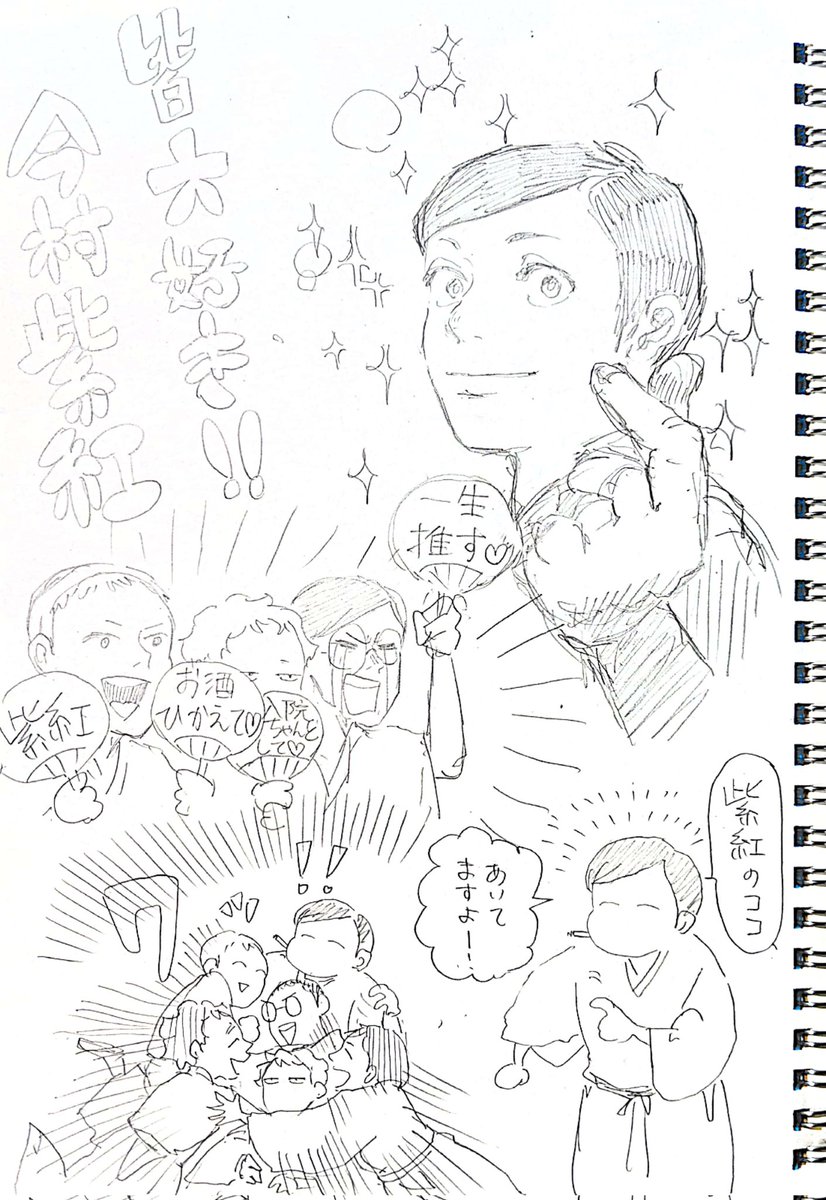 皆大好き!!
今村紫紅
一生
推す♡
紫紅
お酒
ひかえて♡
入院
ちゃんと
して♡
紫紅のココ
あいて
ますよー!
ワ